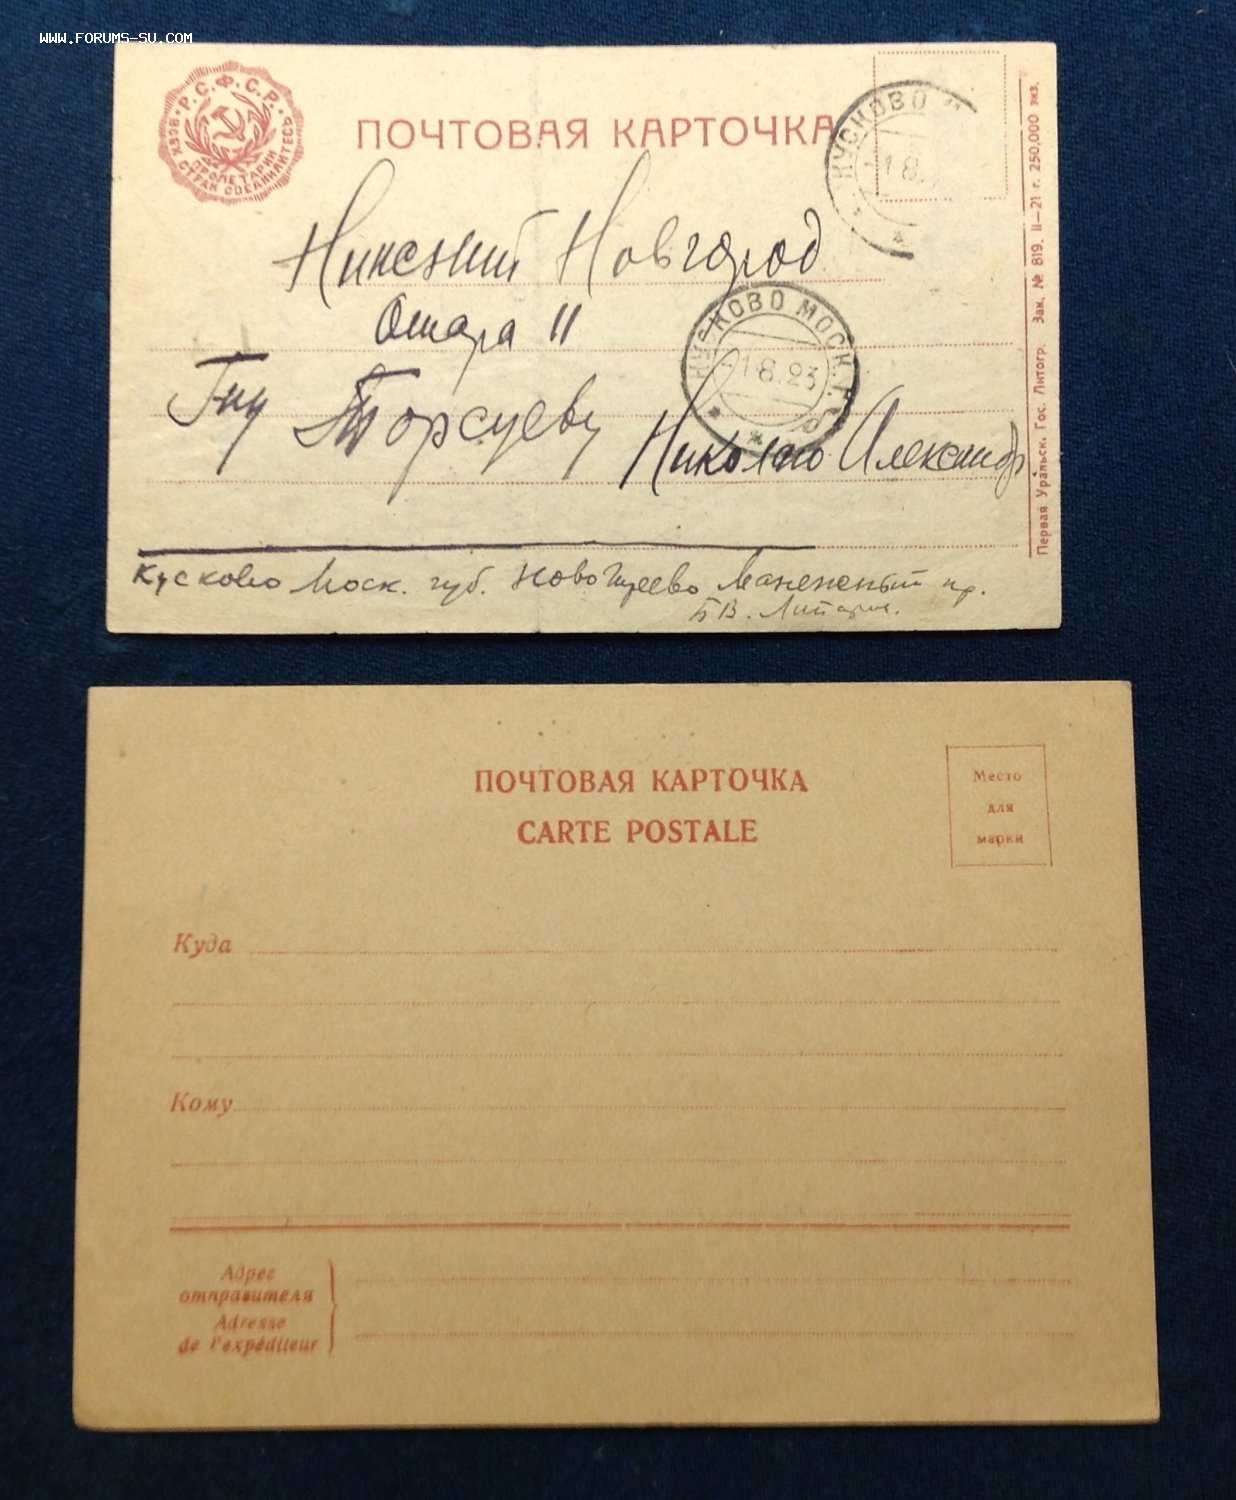 WWW.FORUMS-SU.COM
Р.С.Ф.С.Р.
ПРОЛЕТАРИИ
ВСЕХ СТРАН СОЕДИНЯЙТЕСЬ
ПОЧТОВАЯ КАРТОЧКА
КУСКОВО
1 8.
Нижний Новгород
Ошара 11
КУСКОВО МОСК. Г.
-1.8.23
Гну Торсуеву Николаю Александр
Кусково Моск. губ. Новогиреево Манененый пр.
Первая Уральск. Гос. Литогр. Зак. № 819. II—21 г. 250,000 экз.
ПОЧТОВАЯ КАРТОЧКА
CARTE POSTALE
Место
для
марки
Куда
Кому
Адрес
отправителя
Adresse
de l'expéditeur